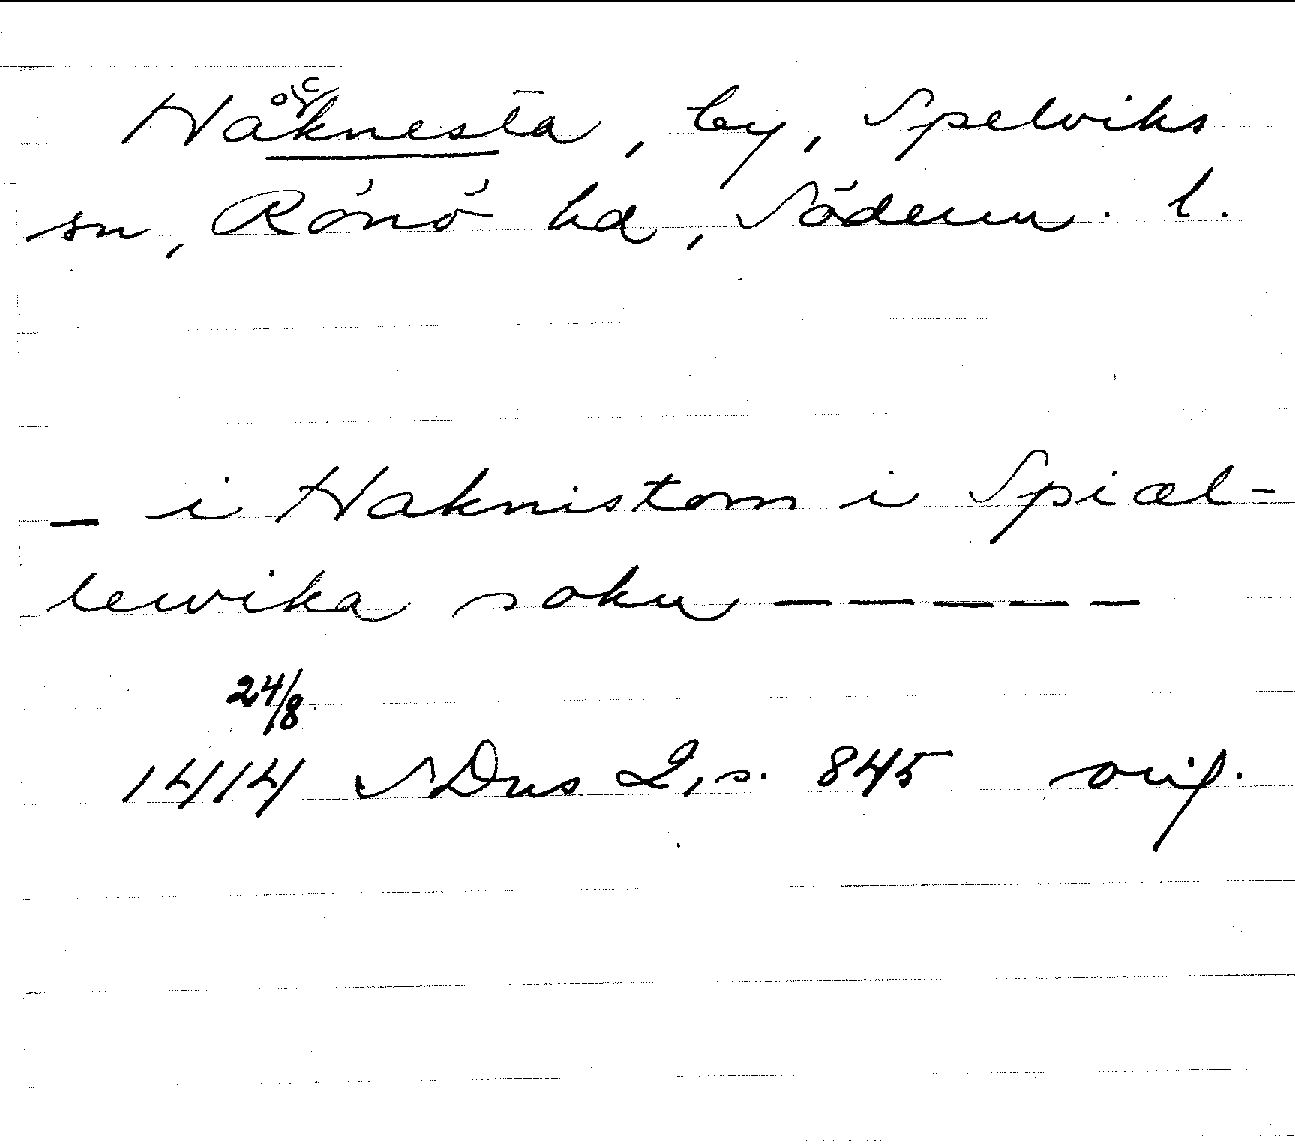 Håcknesta, by, Spelviks
sn, Rönö hd, Söderm. l.
– i Haknistom i Spiæl-
lewika sokn – – – – –
24/8
1414 SDns 2, s. 845 orig.